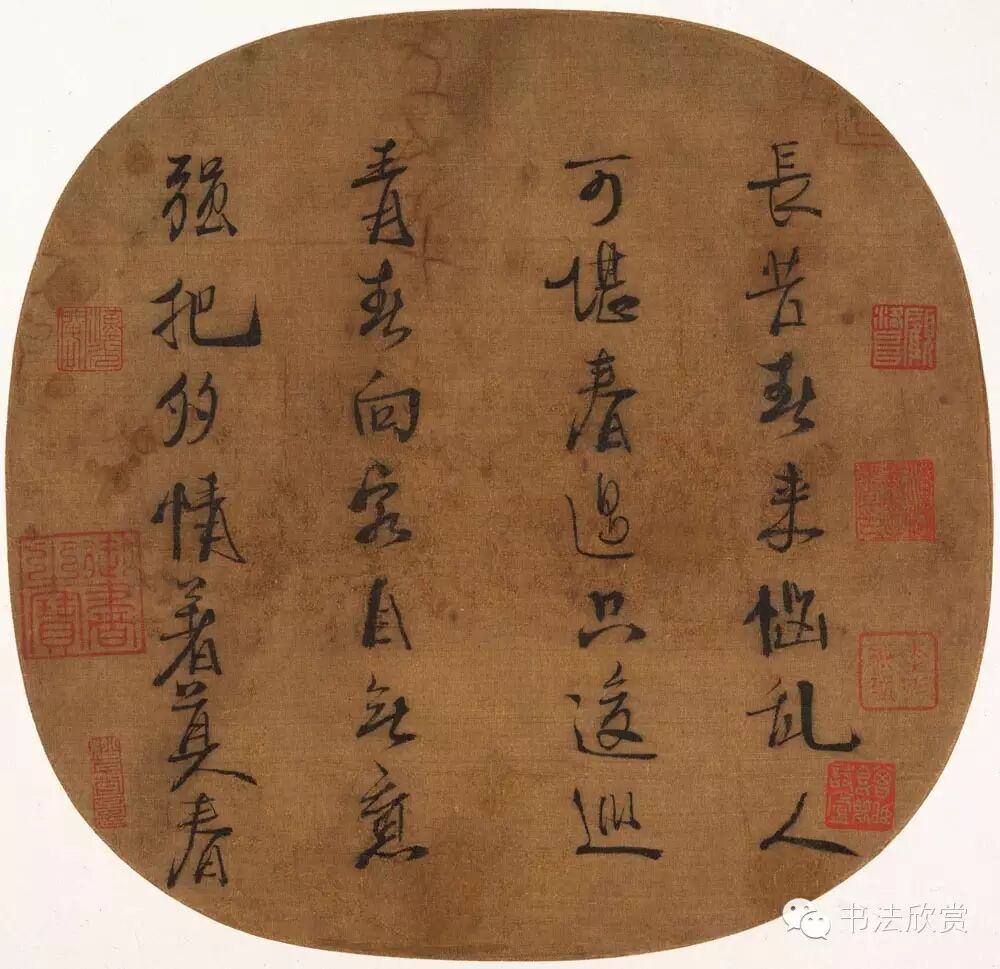 長苦春来惱乱人
可堪春過只逡巡
青春向客自無意
强把多情着莫春
书法欣赏